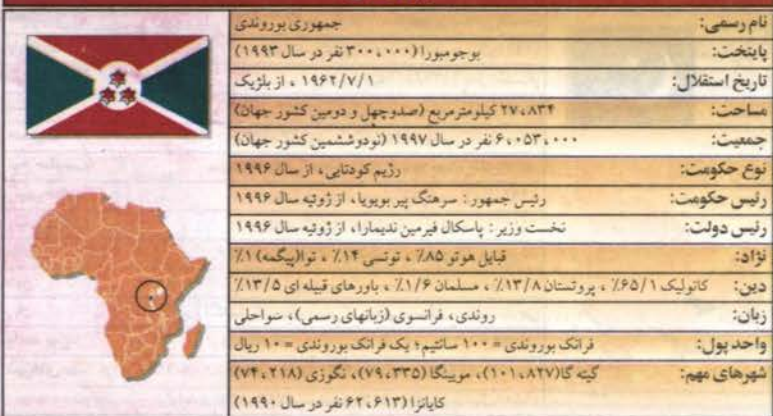 نام رسمی: جمهوری بوروندی
پایتخت: بوجومبورا (۳۰۰،۰۰۰ نفر در سال ۱۹۹۳)
تاریخ استقلال: ۱۹۶۲/۷/۱ ، از بلژیک
مساحت: ۲۷،۸۳۴ کیلومترمربع (صدوچهل و دومین کشور جهان)
جمعیت: ۶،۰۵۳،۰۰۰ نفر در سال ۱۹۹۷ (نودوششمین کشور جهان)
نوع حکومت: رژیم کودتایی، از سال ۱۹۹۶
رئیس حکومت: رئیس جمهور: سرهنگ پیر بویویا، از ژوئیه سال ۱۹۹۶
رئیس دولت: نخست وزیر: پاسکال فیرمین ندیمارا، از ژوئیه سال ۱۹۹۶
نژاد: قبایل هوتو ۸۵٪ ، توتسی ۱۴٪ ، توا(پیگمه) ۱٪
دین: کاتولیک ۶۵/۱٪ ، پروتستان ۱۳/۸٪ ، مسلمان ۱/۶٪ ، باورهای قبیله ای ۱۳/۵٪
زبان: روندی، فرانسوی (زبانهای رسمی)، سواحلی
واحد پول: فرانک بوروندی = ۱۰۰ سانتیم؛ یک فرانک بوروندی = ۱۰ ریال
شهرهای مهم: گیته گا(۱۰۱،۸۲۷)، مویینگا (۷۹،۳۳۵)، نگوزی (۷۴،۲۱۸)
کایانزا (۶۲،۶۱۳ نفر در سال ۱۹۹۰)